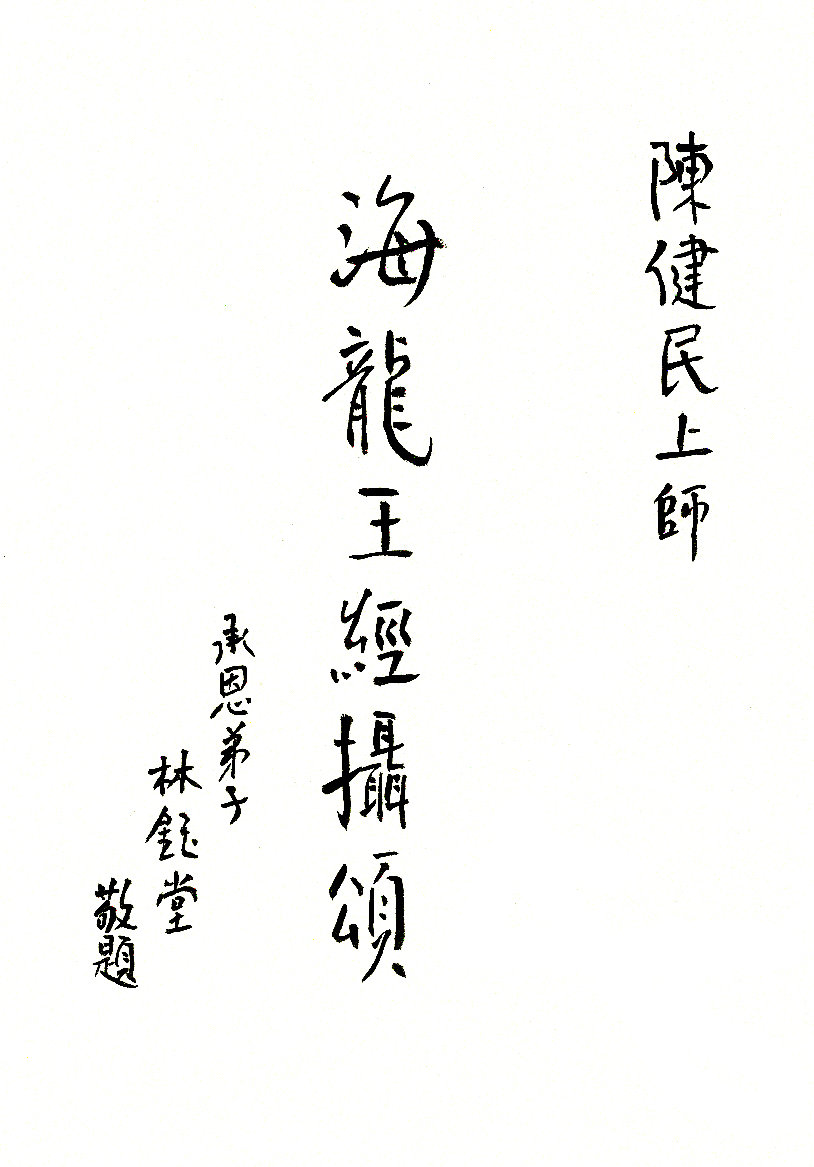 陳健民上師
海龍王經攝頌
承恩弟子
林鈺堂
敬題